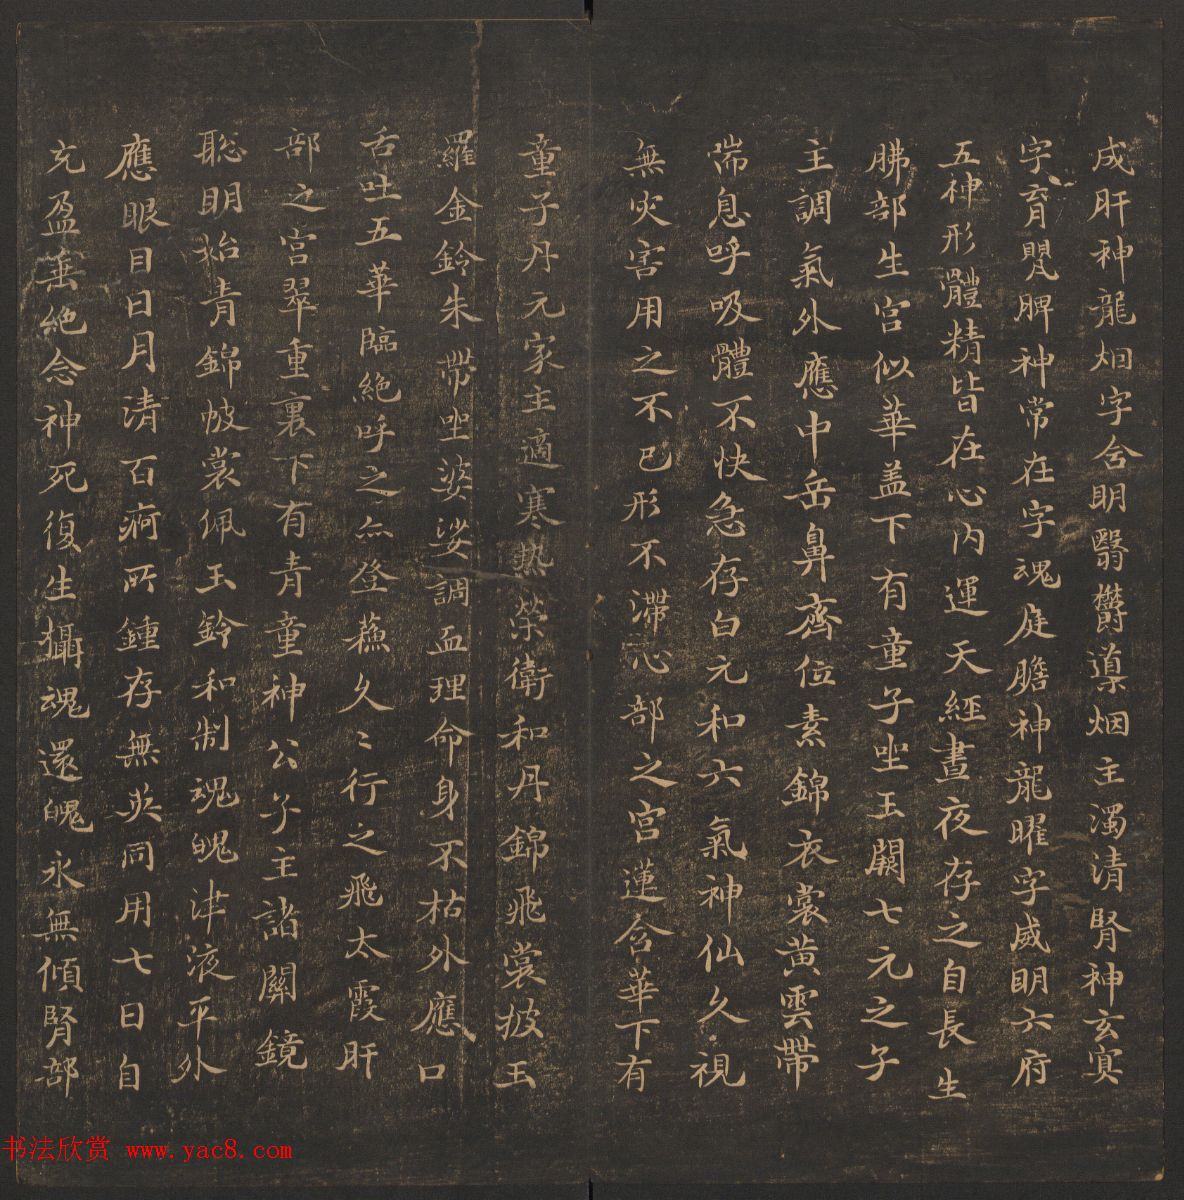 成肝神龍烟字含明翳鬱𨗉烟主濁清腎神玄冥
字育嬰脾神常在字魂庭膽神龍曜字威明六府
五神形體精皆在心內運天經晝夜存之自長生
肺部生宮似華盖下有童子坐玉闕七元之子
主調氣外應中岳鼻齊位素錦衣裳黃雲帶
喘息呼吸體不快急存白元和六氣神仙久視
無灾害用之不已形不滞心部之宮蓮含華下有
童子丹元家主適寒热榮衛和丹錦飛裳披玉
羅金鈴朱帶坐婆娑調血理命身不枯外應口
舌吐五華臨絕呼之亦登蘇久〻行之飛太霞肝
部之宮翠重裏下有青童神公子主諸關鏡
聡明始青錦帔裳佩玉鈴和制魂魄津液平外
應眼目日月清百痾所鍾存無英同用七日自
充盈垂絕念神死復生攝魂還魄永無傾腎部
书法欣赏 www.yac8.com